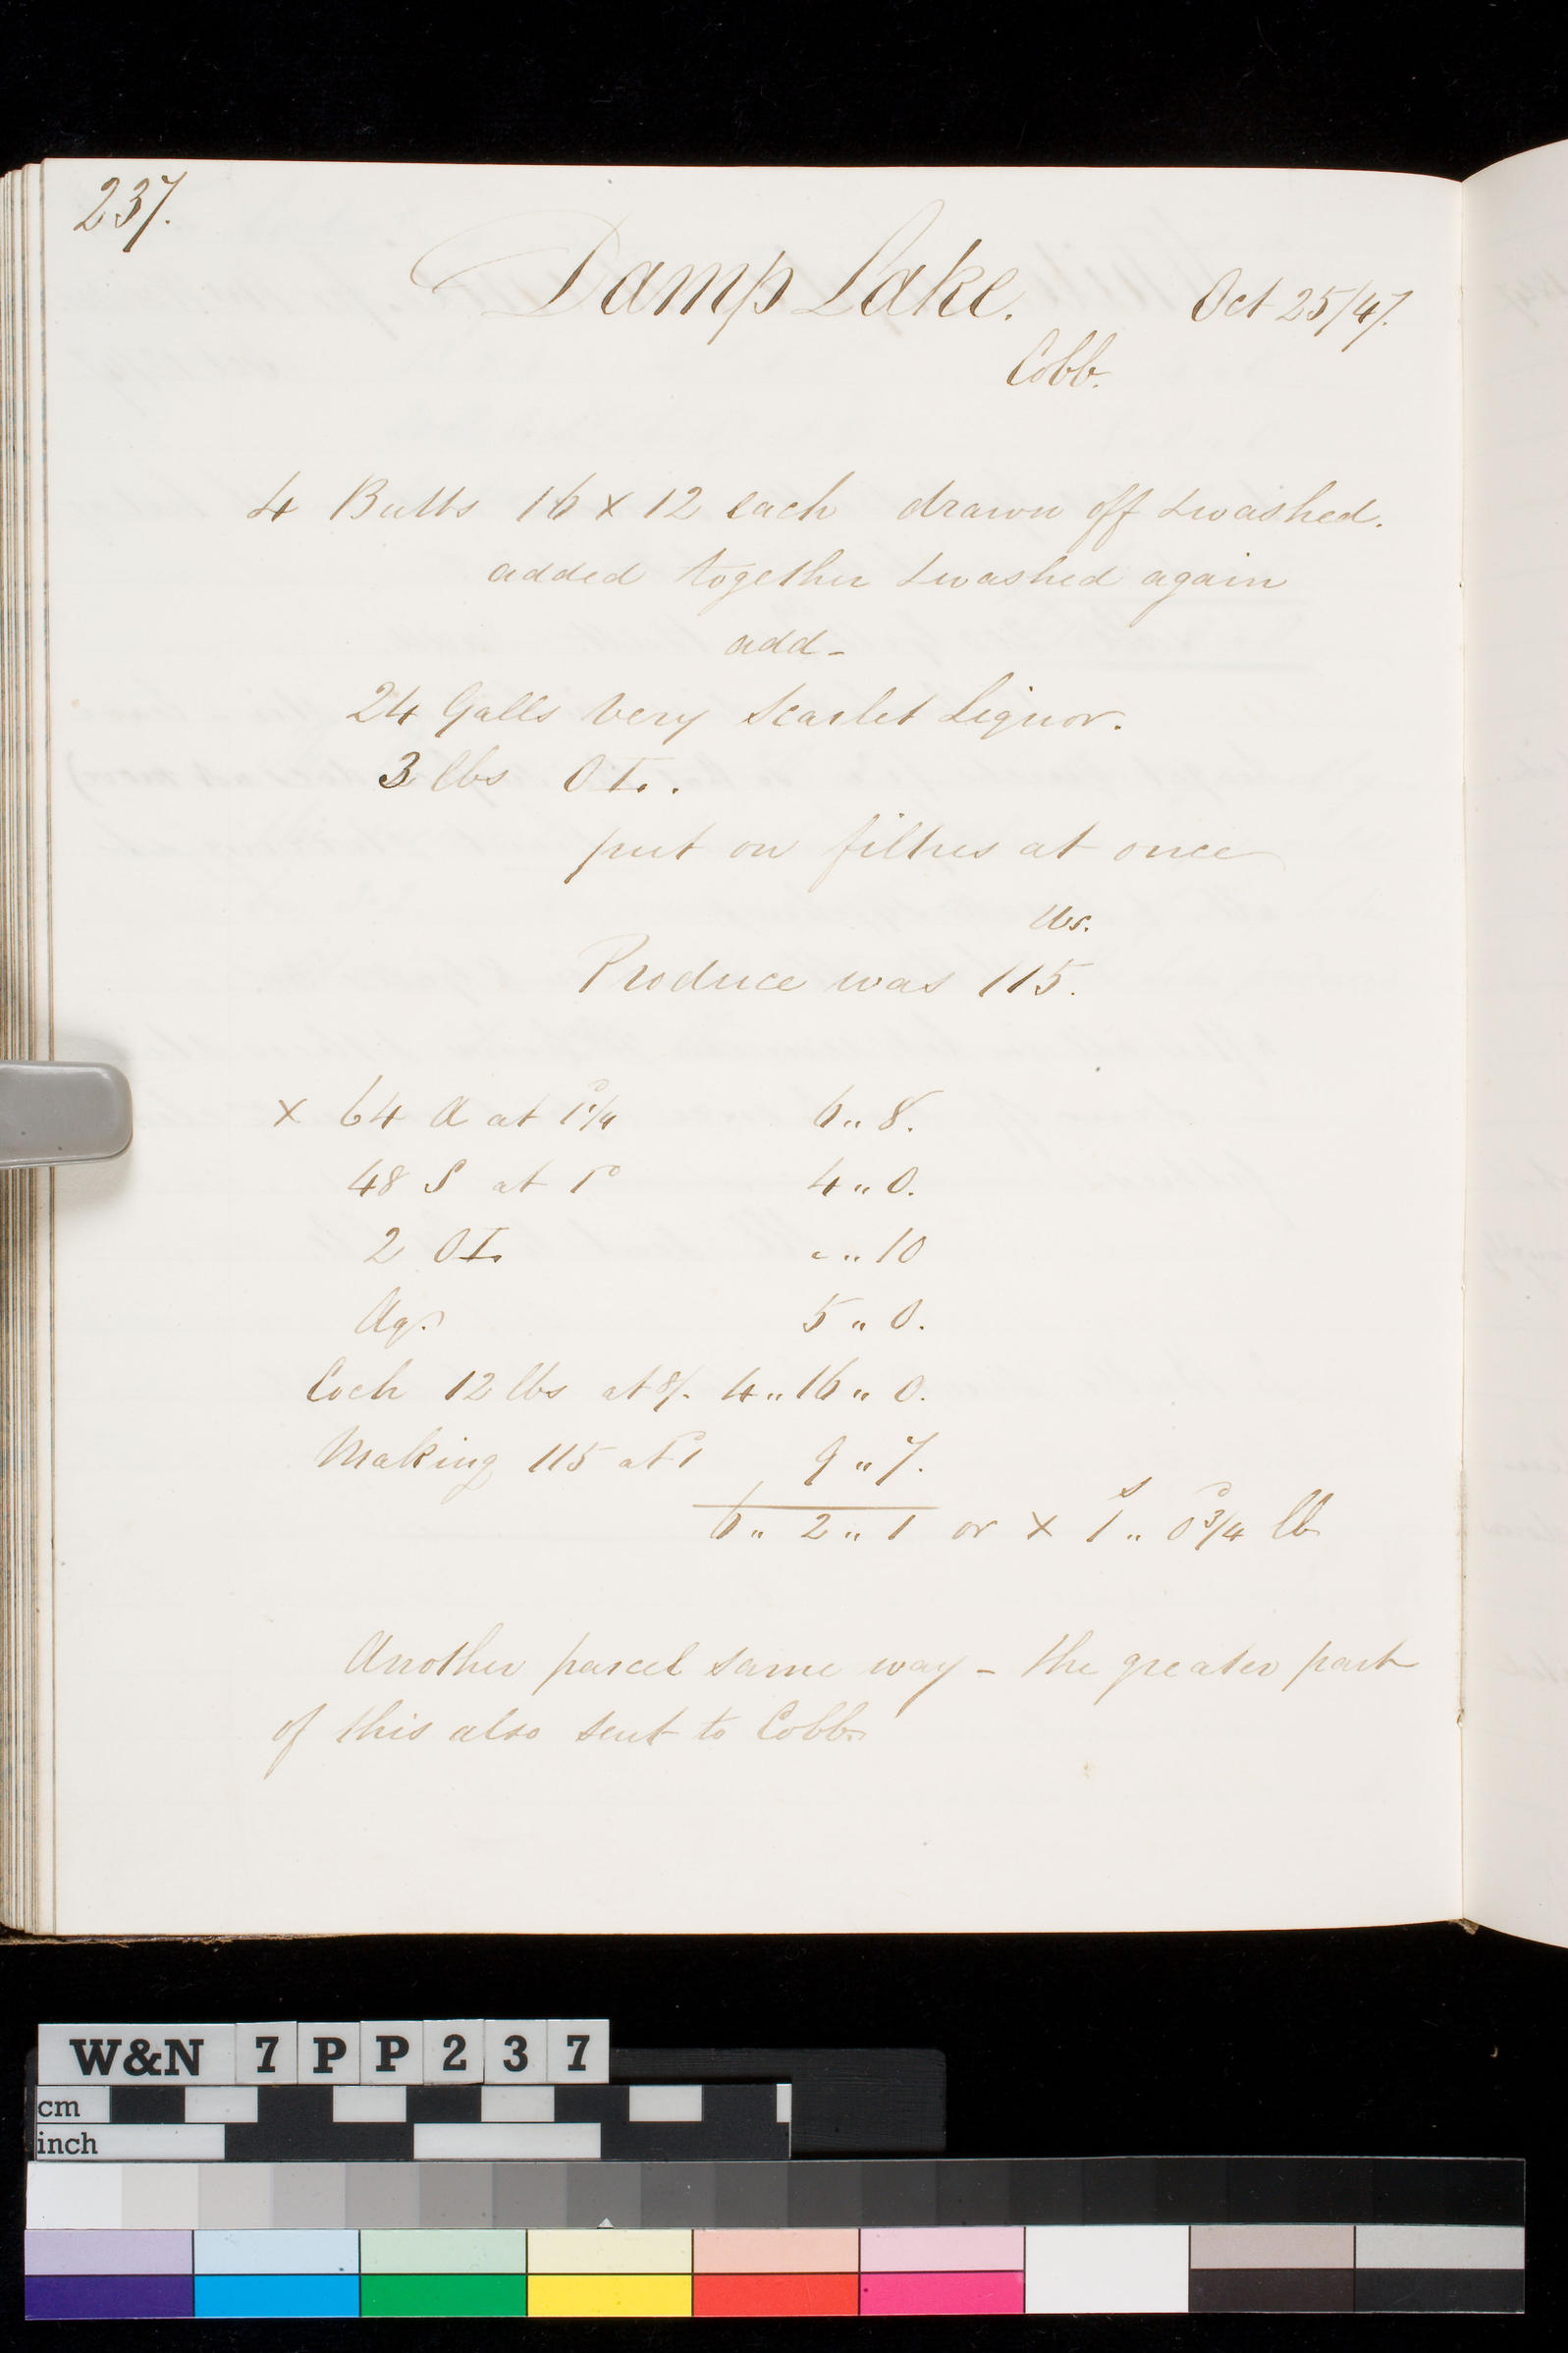 237.
Damp Lake. Oct 25/47.
Cobb.
4 Butts 16 x 12 each drawn off & washed.
added together & washed again
add -
24 Galls very Scarlet Liquor.
3 lbs OT. .
put on filtres at once
lbs.
Produce was 115.
x 64 A at 1 1/4 d 6 " 8.
48 S at 1 d 4 " 0.
2 OT. " " 10
Ag. 5 " 0.
Coch 12 lbs at 8/. 4 " 16 " 0.
Making 115 at 1 d 9 " 7.
6 " 2 " 1 or x 1 s " 0 3/4 d lb
Another parcel same way - the greater part
of this also sent to Cobb.
W&N 7PP237
cm
inch